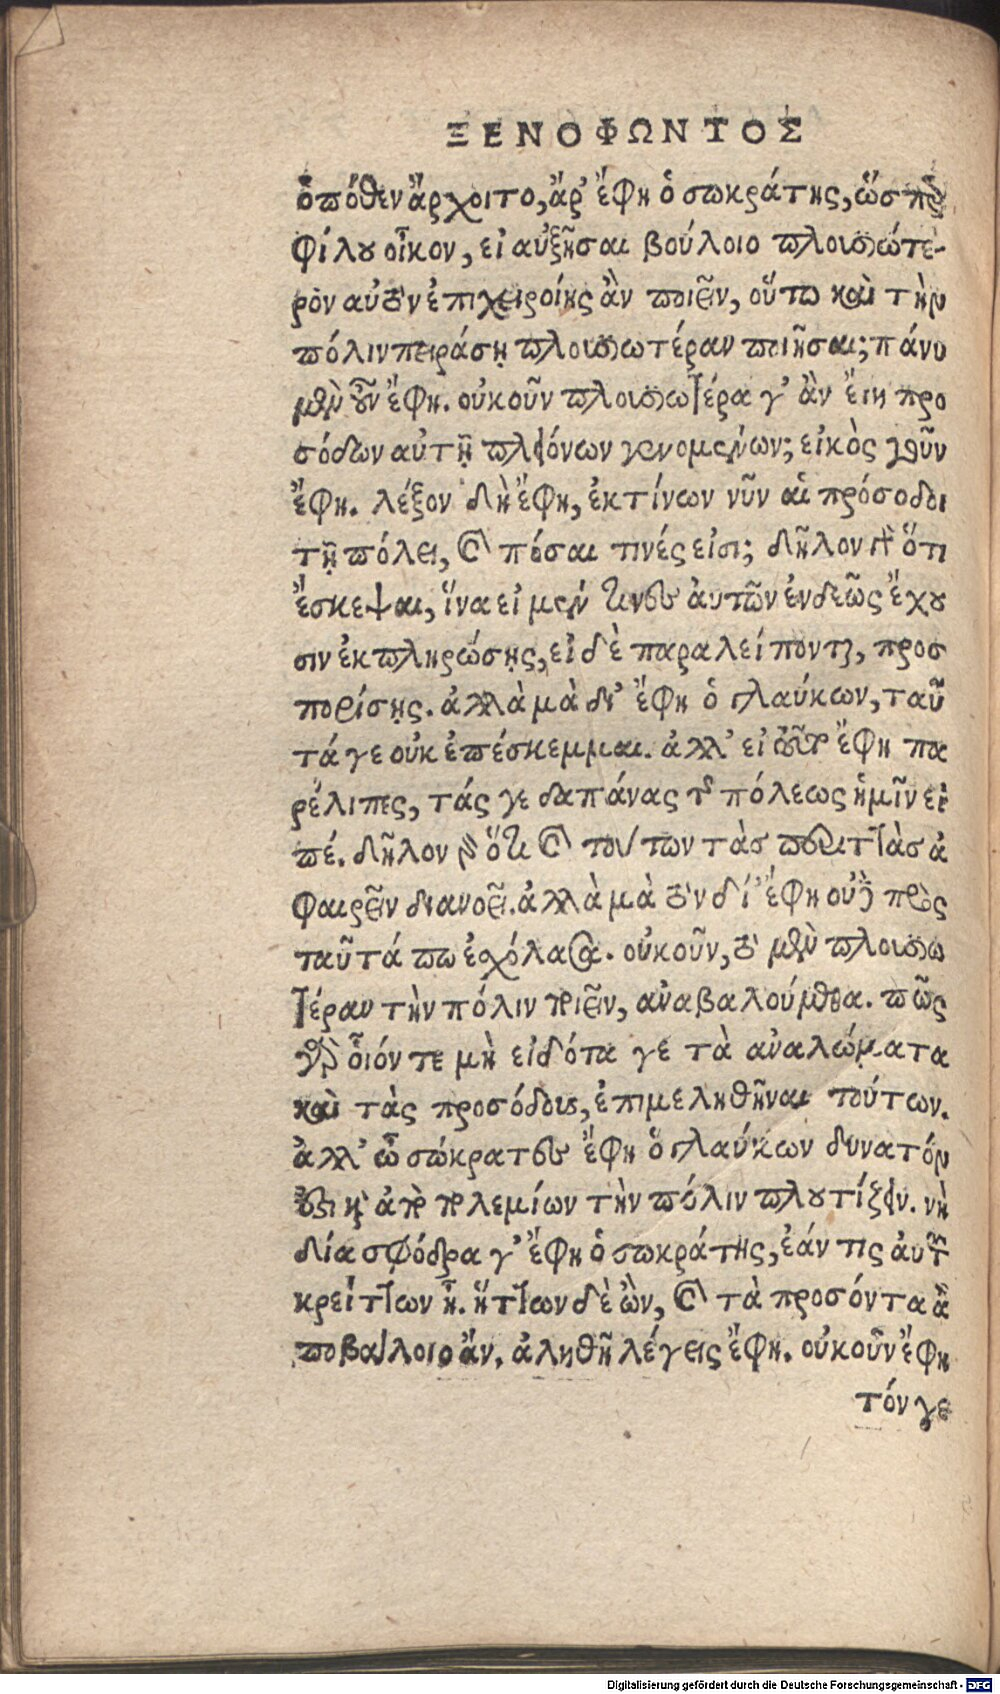 ΞΕΝΟΦΩΝΤΟΣ
ὁπόθεν ἄρχοιτο, ἆρ' ἔφη ὁ σωκράτης, ὥσπερ
φίλου οἶκον, εἰ αὐξῆσαι βούλοιο πλουσιώτε-
ρον αὐτὸν ἐπιχειροίης ἂν ποιεῖν, οὕτω καὶ τὴν
πόλιν πειράσῃ πλουσιωτέραν ποιῆσαι; πάνυ
μὲν οὖν ἔφη. οὐκοῦν πλουσιωτέρα γ' ἂν εἴη προ
σόδων αὐτῇ πλειόνων γενομένων; εἰκὸς γοῦν
ἔφη. λέξον δὴ ἔφη, ἐκ τίνων νῦν αἱ πρόσοδοι
τῇ πόλει, καὶ πόσαι τινές εἰσι; δῆλον γὰρ ὅτι
ἔσκεψαι, ἵνα εἰ μὲν τινες αὐτῶν ἐνδεῶς ἔχου
σιν ἐκπληρώσῃς, εἰ δὲ παραλείπονται, προσ
πορίσῃς. ἀλλὰ μὰ δι' ἔφη ὁ γλαύκων, ταῦ
τά γε οὐκ ἐπέσκεμμαι. ἀλλ' εἰ τοῦτο ἔφη πα
ρέλιπες, τάς γε δαπάνας τῆς πόλεως ἡμῖν εἰ
πέ. δῆλον γὰρ ὅτι καὶ τούτων τὰς περιττὰς ἀ
φαιρεῖν διανοεῖ. ἀλλὰ μὰ τὸν δί' ἔφη οὐδὲ πρὸς
ταῦτά πω ἐσχόλασα. οὐκοῦν, τὸ μὲν πλουσιω
τέραν τὴν πόλιν ποιεῖν, ἀναβαλούμεθα. πῶς
γὰρ οἷόν τε μὴ εἰδότα γε τὰ ἀναλώματα
καὶ τὰς προσόδους, ἐπιμεληθῆναι τούτων.
ἀλλ' ὦ σώκρατες ἔφη ὁ γλαύκων δυνατόν
ἐστι καὶ ἀπὸ πολεμίων τὴν πόλιν πλουτίζειν. νὴ
δία σφόδρα γ' ἔφη ὁ σωκράτης, ἐάν τις αὐτῶν
κρείττων ᾖ. ἥττων δὲ ὢν, καὶ τὰ προσόντα ἀ
ποβάλλοιο ἄν. ἀληθῆ λέγεις ἔφη. οὐκοῦν ἔφη
τόν γε
Digitalisierung gefördert durch die Deutsche Forschungsgemeinschaft - DFG